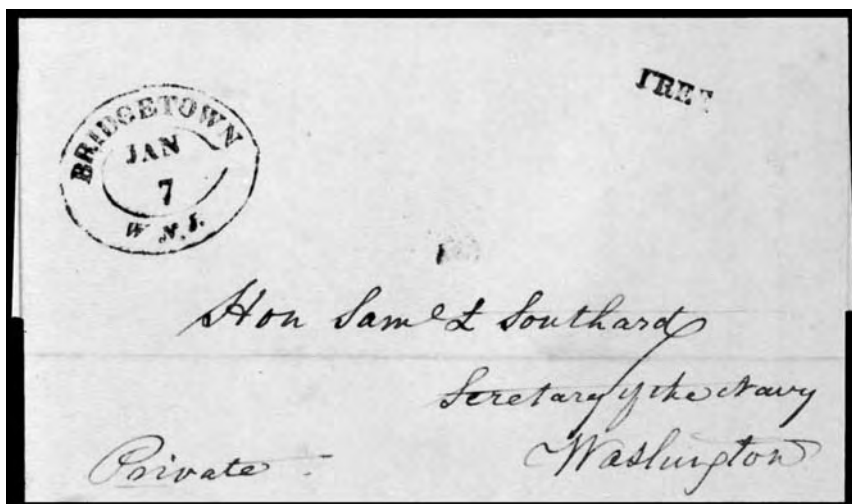 BRIDGETOWN
JAN
7
W. N.J.
FREE
Hon Saml L Southard
Secretary of the Navy
Washington
Private